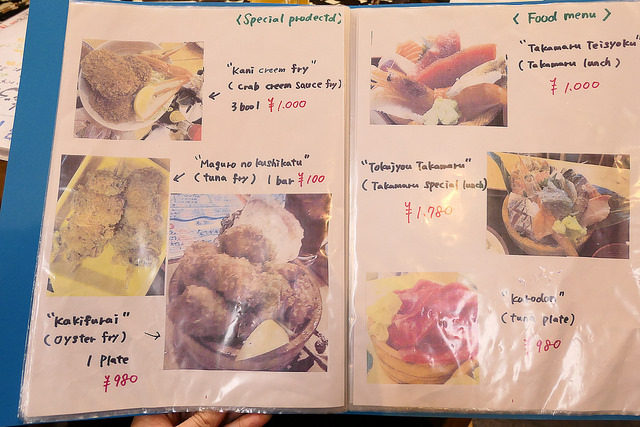 <Special prodectd>
"Kani creem fry"
(crab creem sauce fry)
3 bool ¥1.000
"Maguro no kushikatu"
(tuna fry) 1 bar ¥100
"Kakifurai"
(oyster fry)
1 Plate
¥980
<Food menu>
"Takamaru Teisyoku"
(Takamaru lunch)
¥1.000
"Tokujyou Takamaru"
(Takamaru special lunch)
¥1.780
(tuna plate)
¥980